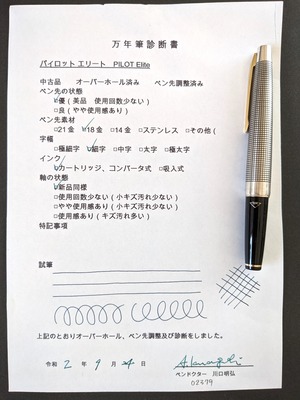 万年筆診断書
パイロット エリート　PILOT Elite
中古品　オーバーホール済み　ペン先調整済み
ペン先の状態
☑優（美品　使用回数少ない）
□良（やや使用感あり）
ペン先素材
□21金　☑18金　□14金　□ステンレス　□その他（
字幅
□極細字　☑細字　□中字　□太字　□極太字
インク
☑カートリッジ、コンバータ式　□吸入式
軸の状態
☑新品同様
□使用回数少ない（小キズ汚れ少ない）
□やや使用感あり（小キズ汚れ少ない）
□使用感あり（キズ汚れ多い）
特記事項
試筆
上記のとおりオーバーホール、ペン先調整及び診断をしました。
令和　2　年　9　月　　日
ペンドクター　川口明弘
02379